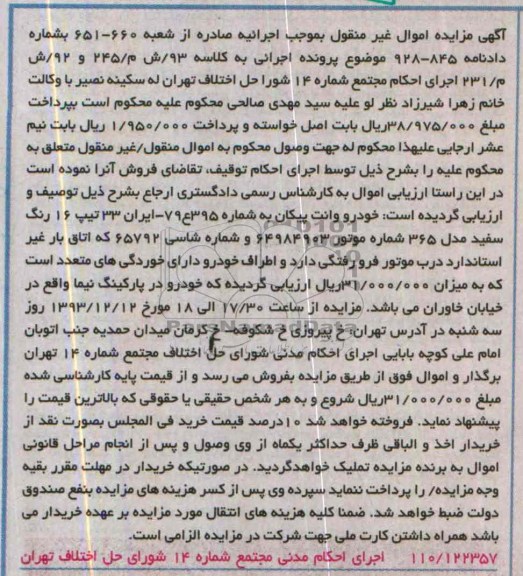 آگهی مزایده اموال غیر منقول بموجب اجرائیه صادره از شعبه ۶۶۰-۶۵۱ بشماره
دادنامه ۸۴۵-۹۲۸ موضوع پرونده اجرائی به کلاسه ۹۳/ش م/۲۴۵ و ۹۲/ش
م/۲۳۱ اجرای احکام مجتمع شماره ۱۴ شورا حل اختلاف تهران له سکینه نصیر با وکالت
خانم زهرا شیرزاد نظر لو علیه سید مهدی صالحی محکوم علیه محکوم است بپرداخت
مبلغ ۳۸/۹۷۵/۰۰۰ریال بابت اصل خواسته و پرداخت ۱/۹۵۰/۰۰۰ ریال بابت نیم
عشر ارجایی علیهذا محکوم له جهت وصول محکوم به اموال منقول/غیر منقول متعلق به
محکوم علیه را بشرح ذیل توسط اجرای احکام توقیف، تقاضای فروش آنرا نموده است
در این راستا ارزیابی اموال به کارشناس رسمی دادگستری ارجاع بشرح ذیل توصیف و
ارزیابی گردیده است: خودرو وانت پیکان به شماره ۳۹۵ع۷۹-ایران ۳۳ تیپ ۱۶ رنگ
سفید مدل ۳۶۵ شماره موتور ۶۴۹۸۴۹۰۳ و شماره شاسی ۶۵۷۹۲ که اتاق بار غیر
استاندارد درب موتور فرو رفتگی دارد و اطراف خودرو دارای خوردگی های متعدد است
که به میزان ۳۱/۰۰۰/۰۰۰ریال ارزیابی گردیده که خودرو در پارکینگ نیما واقع در
خیابان خاوران می باشد. مزایده از ساعت ۱۷/۳۰ الی ۱۸ مورخ ۱۳۹۳/۱۲/۱۲ روز
سه شنبه در آدرس تهران، خ پیروزی خ شکوفه خ کرمان میدان حمدیه جنب اتوبان
امام علی کوچه بابایی اجرای احکام مدنی شورای حل اختلاف مجتمع شماره ۱۴ تهران
برگذار و اموال فوق از طریق مزایده بفروش می رسد و از قیمت پایه کارشناسی شده
مبلغ ۳۱/۰۰۰/۰۰۰ریال شروع و به هر شخص حقیقی یا حقوقی که بالاترین قیمت را
پیشنهاد نماید. فروخته خواهد شد ۱۰درصد قیمت خرید فی المجلس بصورت نقد از
خریدار اخذ و الباقی ظرف حداکثر یکماه از وی وصول و پس از انجام مراحل قانونی
اموال به برنده مزایده تملیک خواهدگردید. در صورتیکه خریدار در مهلت مقرر بقیه
وجه مزایده/ را پرداخت ننماید سپرده وی پس از کسر هزینه های مزایده بنفع صندوق
دولت ضبط خواهد شد. ضمنا کلیه هزینه های انتقال مورد مزایده بر عهده خریدار می
باشد همراه داشتن کارت ملی جهت شرکت در مزایده الزامی است.
۱۱۰/۱۲۲۳۵۷ اجرای احکام مدنی مجتمع شماره ۱۴ شورای حل اختلاف تهران